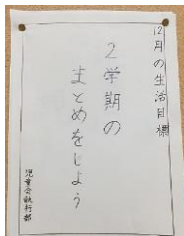 12月の生活目標
2学期の
まとめをしよう
児童会執行部